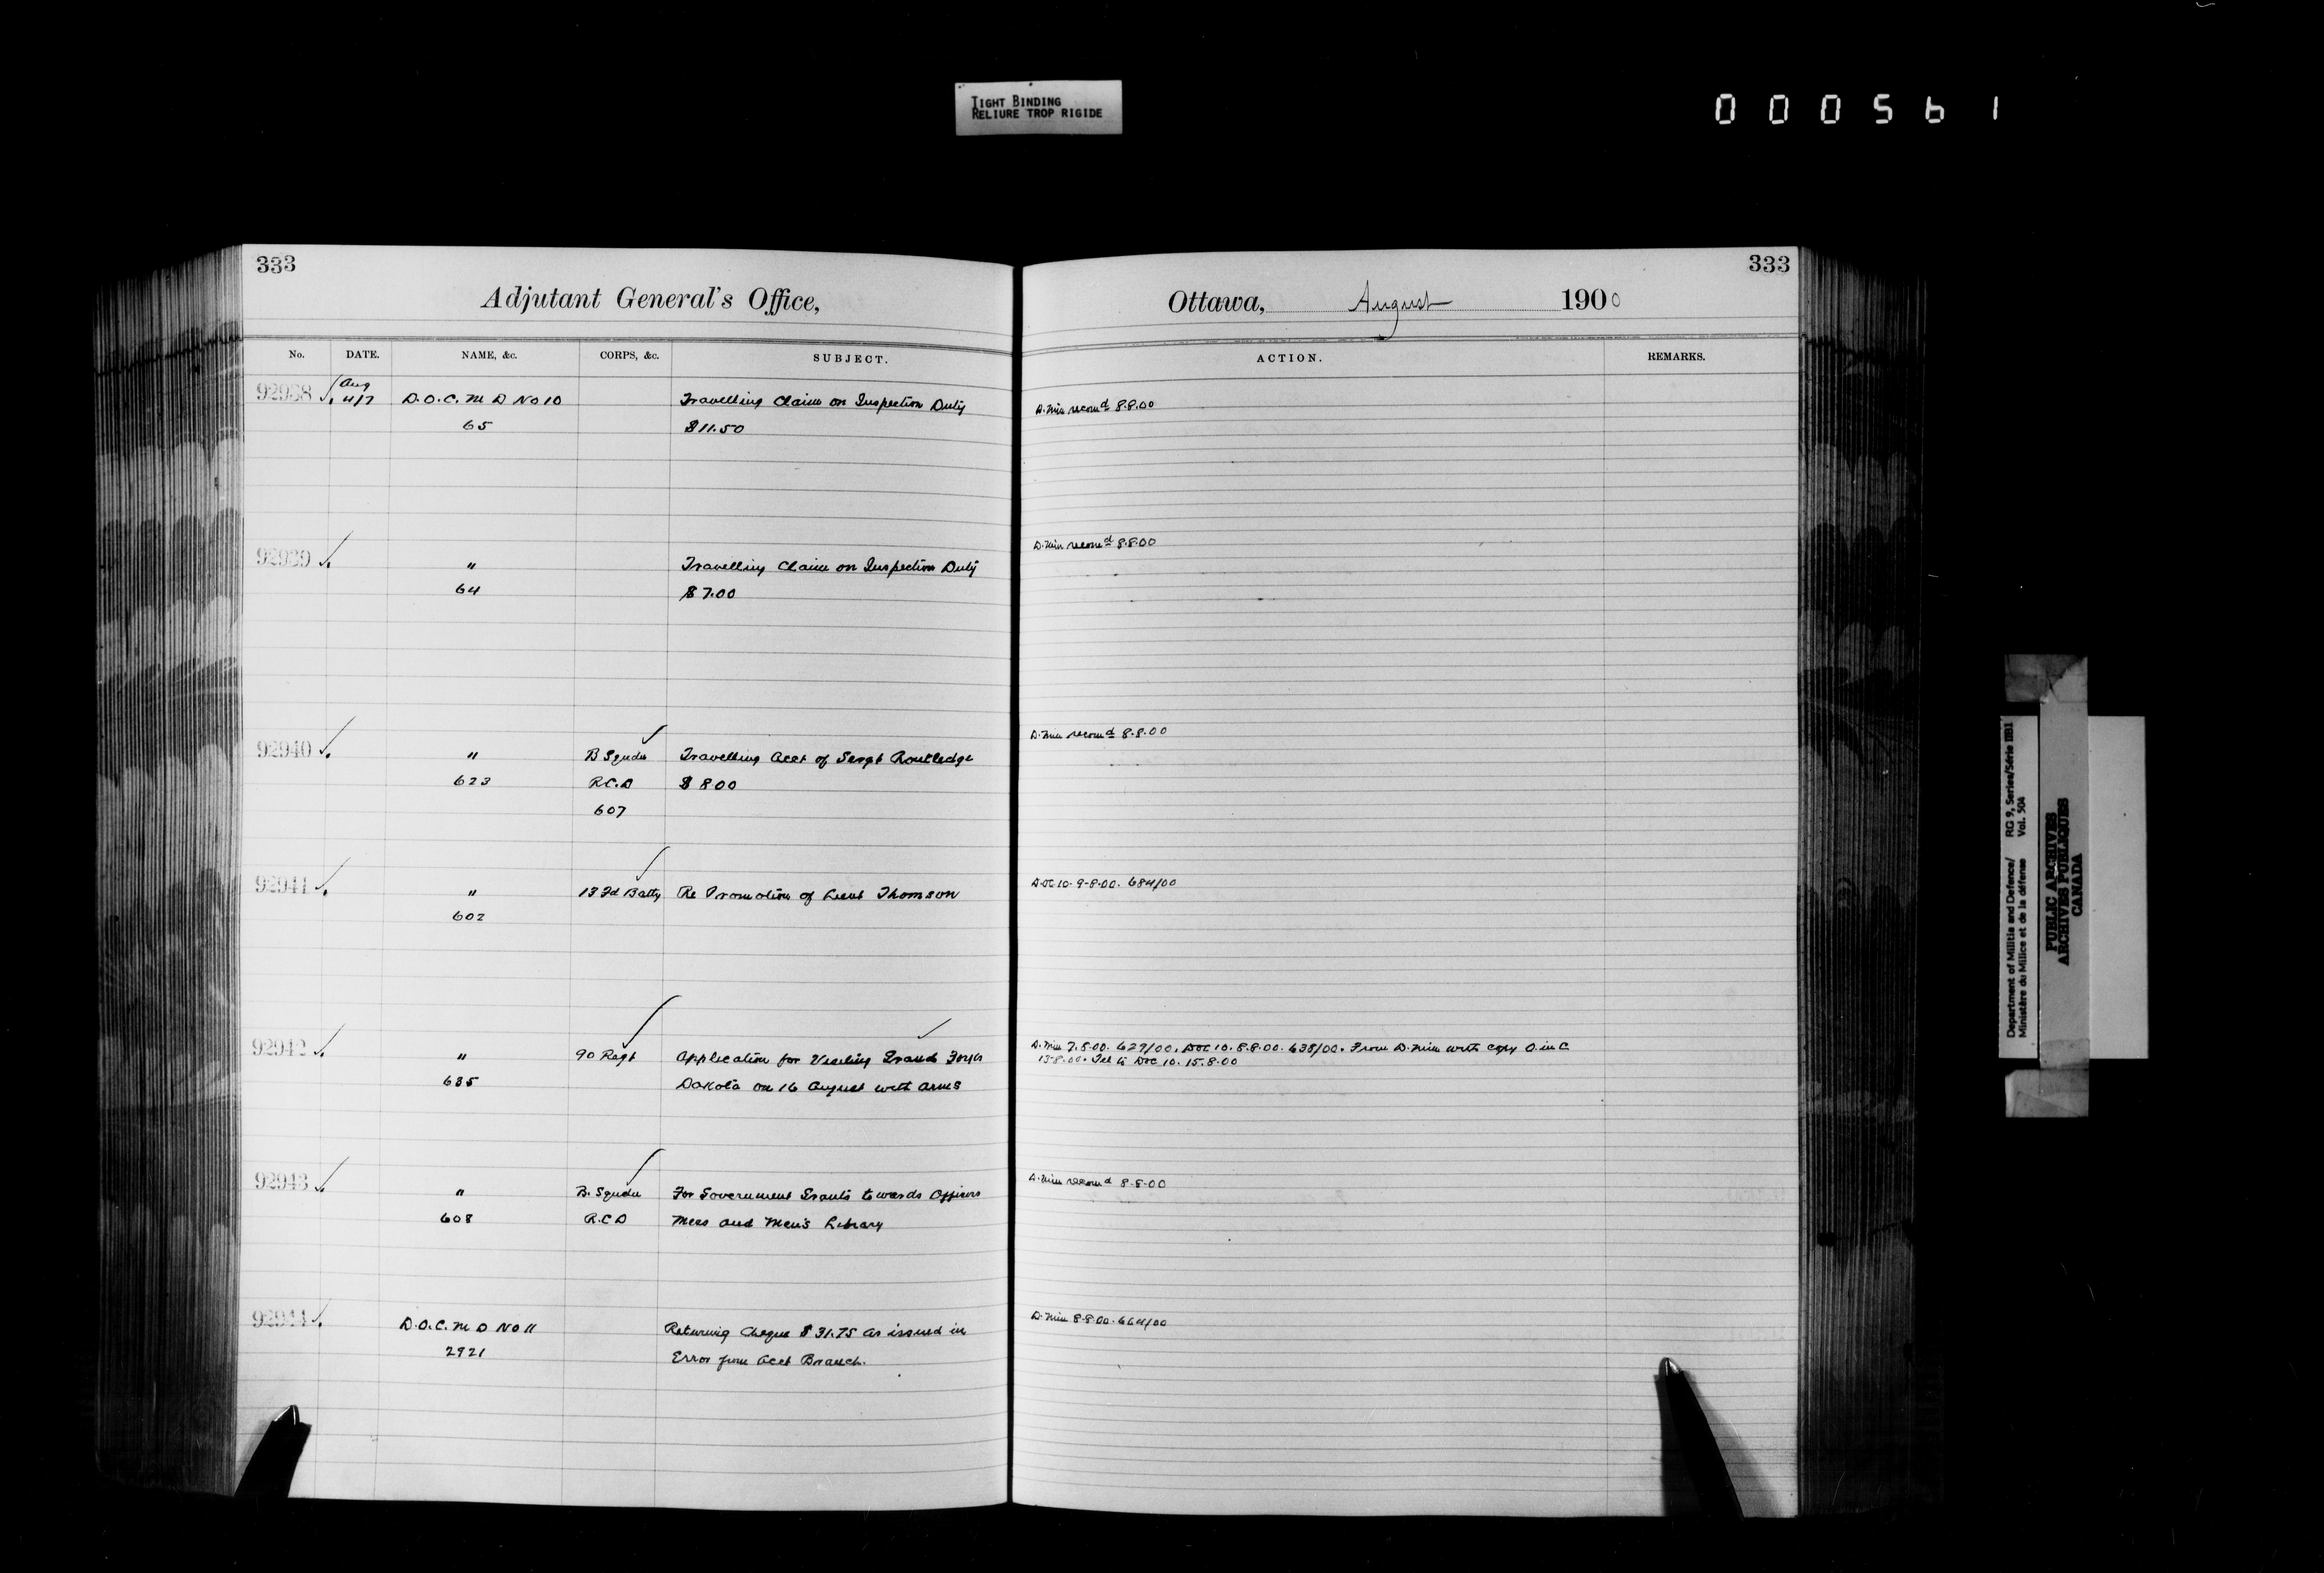 TIGHT BINDING
RELIURE TROP RIGIDE
000561
333
333
Adjutant General's Office,
Ottawa, August 1900
No. DATE. NAME, &c. CORPS, &c. SUBJECT. ACTION. REMARKS.
92938 Aug 4/7 D.O.C. M D No 10 Travelling Claim on Inspection Duty D. Min recomd 8.8.00
65 $11.50
92939 " Travelling Claim on Inspection Duty D. Min recomd 8.8.00
64 $7.00
92940 " B Sqdn Travelling Acct of Sergt Routledge D. Min recomd 8.8.00
623 R.C.D $8.00
607
92941 " 13 Fd Batty Re Promotion of Lieut Thomson DOC 10. 9-8-00. 684/00
602
92942 " 90 Regt Application for Visiting Grand Forks D. Min 7.8.00. 627/00. DOC 10. 8.8.00. 638/00. From D. Min with copy O. in C
635 Dakota on 16 August with arms 13.8.00. Tel to DOC 10. 15.8.00
92943 " B. Sqdn For Government Grants towards Officers D. Min recomd 8-8-00
608 R.C.D Mess and Men's Library
92944 D.O.C. M D No 11 Returning Cheque $31.75 as issued in D. Min 8-8-00. 664/00
2921 Error from Acct Branch.
Department of Militia and Defence/ RG 9, Series/Série IIB1
Ministère du Milice et de la défense Vol. 504
PUBLIC ARCHIVES
ARCHIVES PUBLIQUES
CANADA